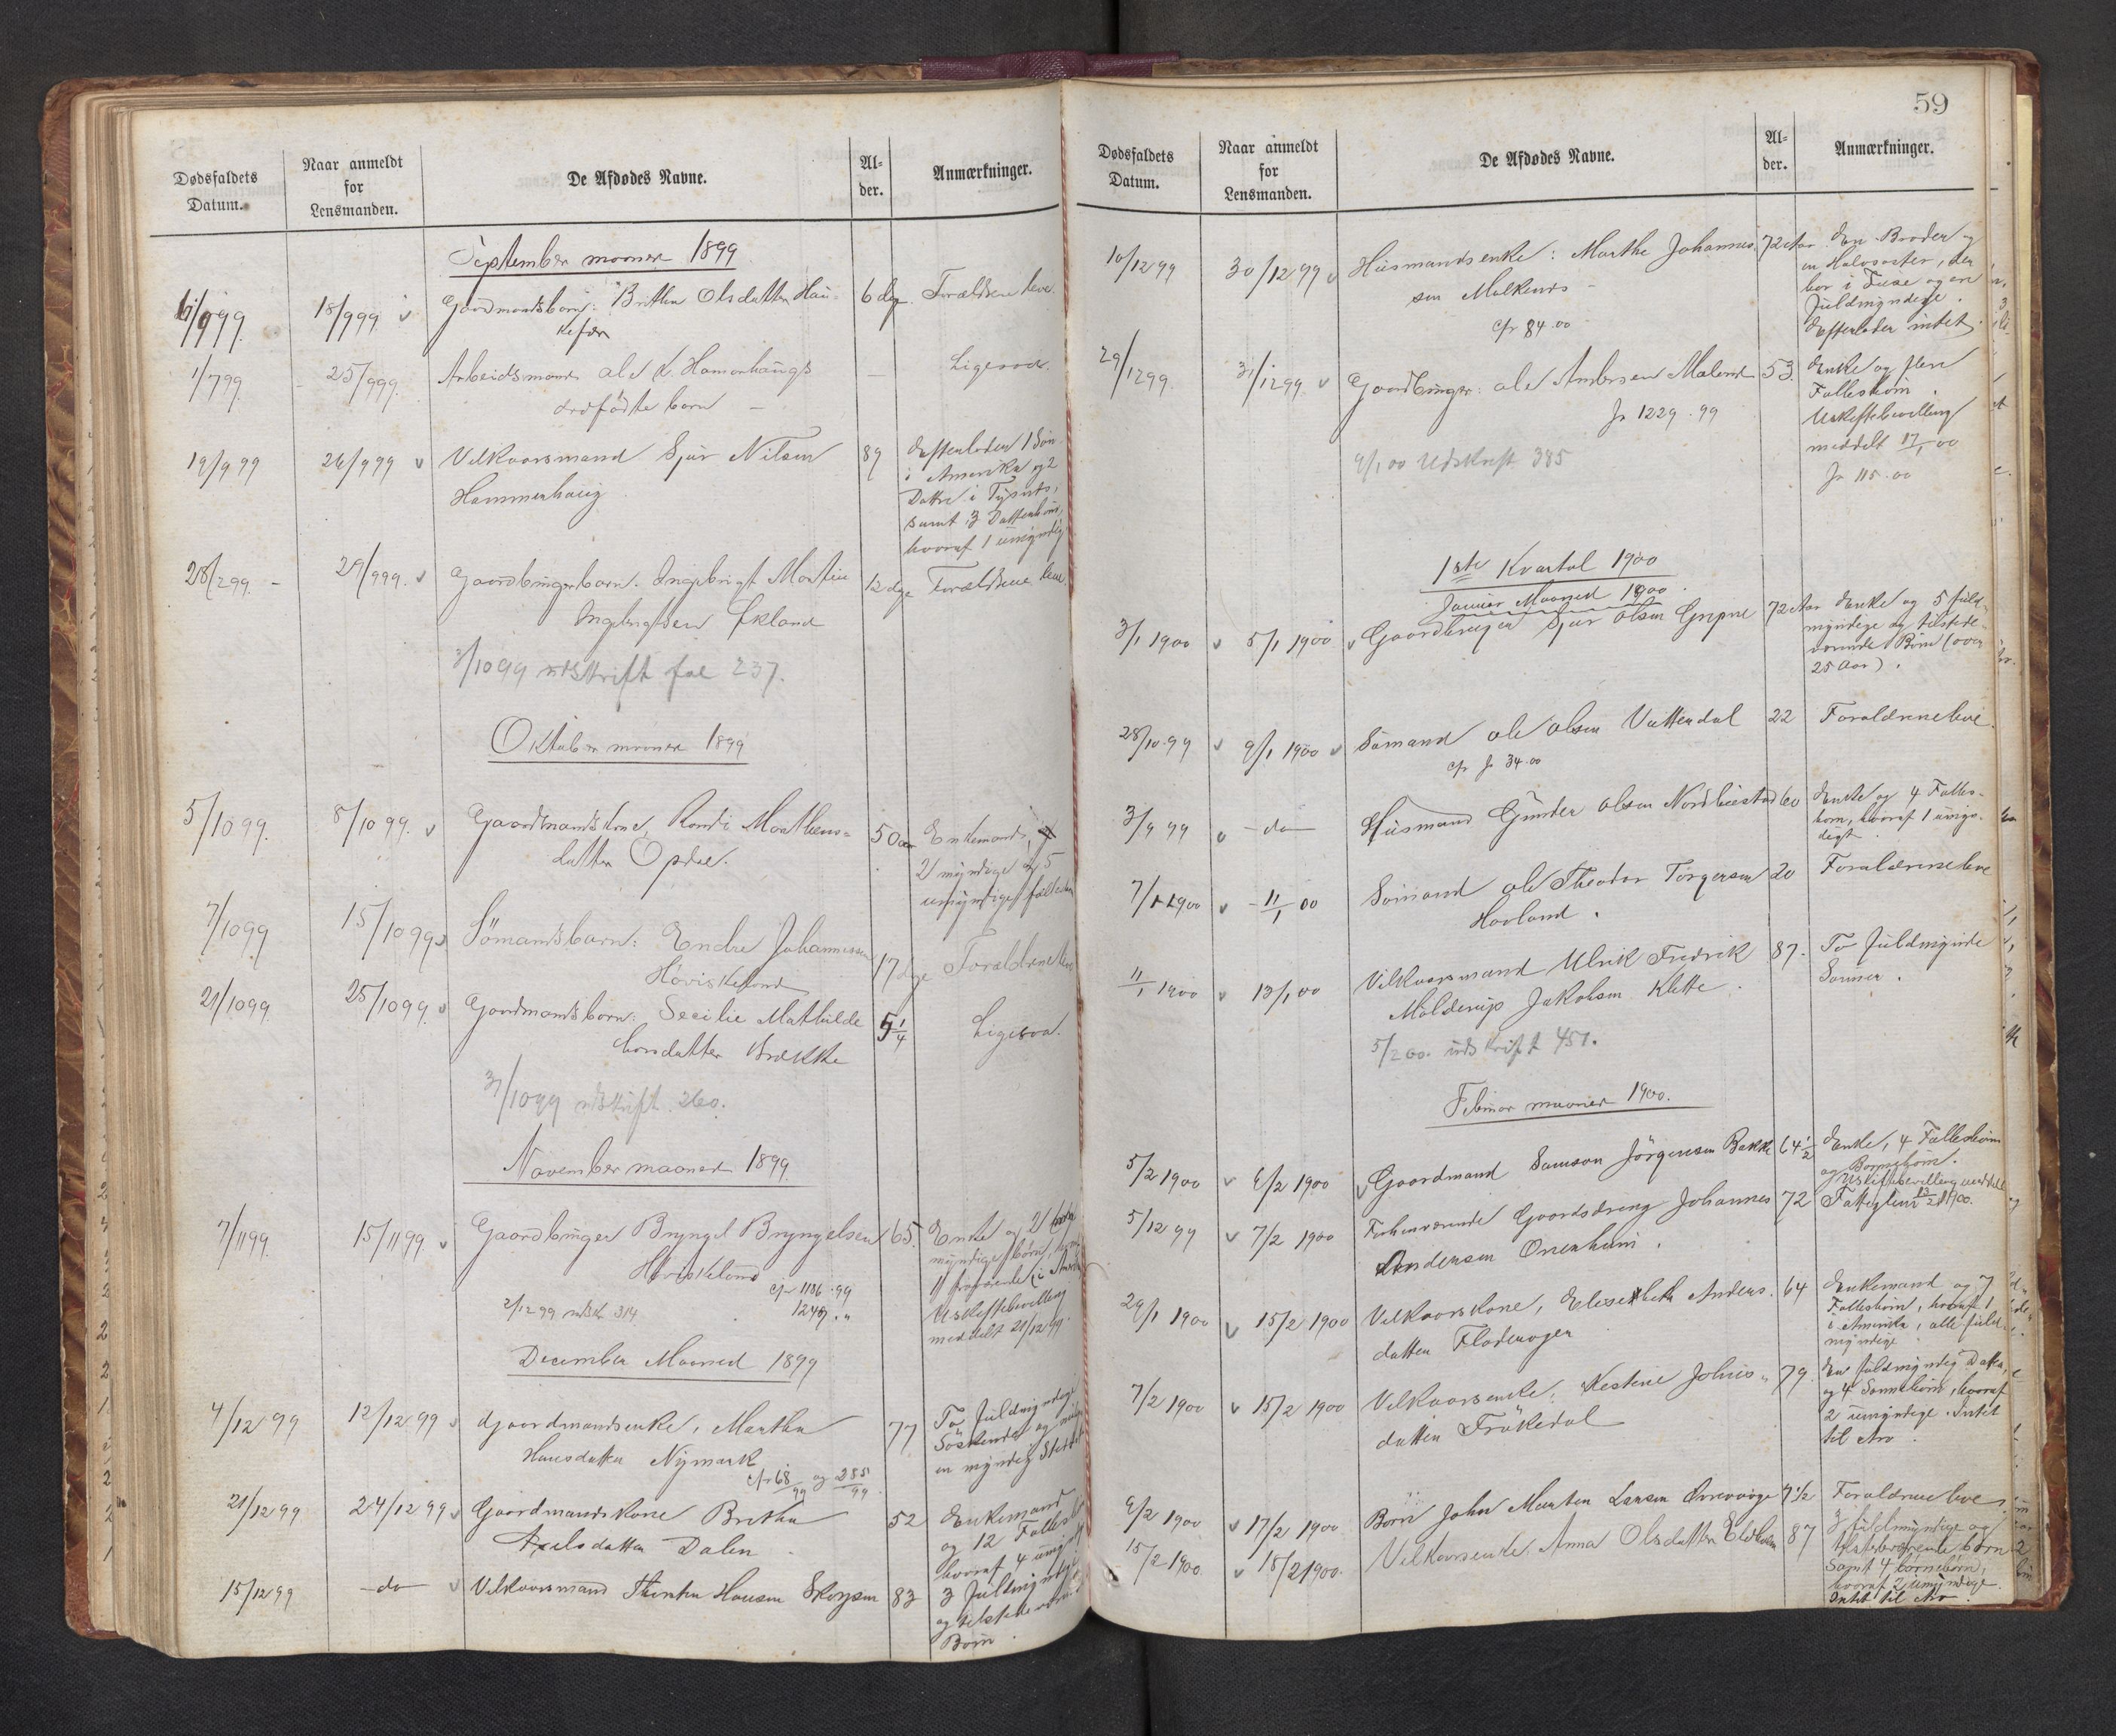 Dødsfaldets Datum.
Naar anmeldt for Lensmanden.
De Afdødes Navne.
Al-der.
Anmærkninger.
September maaned 1899
6/9 99. 18/9 99. v Gaardmandsbarn: Britha Olsdatter Hau-
6 dg. Forældrene leve.
1/7 99. - 25/9 99. Arbeidsmand Ole L. Hammerhaugs
dødfødte barn —
— Ligesaa.
19/9 99 26/9 99 v Vilkaarsmand Sjur Nilsen
Hammerhaug
89 Efterlader 1 Søn
i Amerika og 2
Døtre i Tysnes,
samt 3 Datterbørn,
hvoraf 1 umyndig
28/2 99. - 29/9 99. v Gaardbrugerbarn. Ingebrigt Martin
Ingebrigtsen Økland
12 dge Forældrene leve.
/10 99 udskrift fol 237.
Oktober maaned 1899
5/10 99. 8/10 99. v Gaardmandskone, Randi Mathias-
datter Opdal.
50 aar Enkemand,
2 myndige og 5
umyndige fælles
7/10 99 15/10 99 v Sømandsbarn: Endre Johannessen
Høviskeland
17 dge Forældrene leve
21/10 99. 25/10 99. v Gaardmandsbarn: Secilie Mathilde
Larsdatter Brække
5 1/4 Ligesaa.
31/10 99 udskrift 260.
November maaned 1899.
7/11 99. 15/11 99 v Gaardbruger Bryngel Bryngelsen
Høviskeland
cfr 1136.99
1249. "
2/12 99 udsk 314
65. Enke og 2
myndige børn,
1 fraværende i
Uskiftebevilling
meddelt 21/12 99.
December Maaned 1899
4/12 99 12/12 99 v Gaardmandsenke, Martha
Hansdatter Nymark
cfr 68/99 og 255/99.
77 To fuldmyndige
Søskende og
en myndig
21/12 99 24/12 99 v Gaardmandskone Brithe
Axelsdatter Dalen
52 Enkemand
og 12 Fælles
hvoraf 4
15/12 99 — do — v Vilkaarsmand Hansen Skorpen
83 3 fuldmyndige
og tilstede
Børn.
59
Dødsfaldets Datum.
Naar anmeldt for Lensmanden.
De Afdødes Navne.
Al-der.
Anmærkninger.
10/12 99 30/12 99 v Husmandsenke: Marthe Johannes
sen Malkenes —
cfr 84.00
72 Aar En Broder og
en Halvsøster, der
bor i Fuse og er
fuldmyndige.
Efterlader intet.
29/12 99. 31/12 99 v Gaardbruger: Ole Andersen Malene
Jr 1229.99
53. Enke og flere
Fællesbørn.
Uskiftebevilling
meddelt 17/1 00
Jr 115.00
9/1 00 Udskrift 385
1ste Kvartal 1900
Januar Maaned 1900.
3/1 1900 v 5/1 1900 v Gaardbruger Sjur Olsen Gripne
72 Aar Enke og 5 fuld-
myndige og tilstede-
værende Børn (over
25 Aar).
28/10.99 v 9/1 1900 v Sømand Ole Olsen Vattendal
cfr Jr 34.00
22 Forældrene leve.
3/9 99 v — do — Husmand Gunder Olsen Nordhuestad
60 Enke og 4 Fælles-
børn, hvoraf 1 umyn-
digt.
7/1 1900 v - 11/1 00 Sømand Ole Theodor Torgersen
Havland.
20 Forældrene leve
11/1 1900 v 13/1 00 Vilkaarsmand Ulrik Fredrik
Molderup Jakobsen Klette.
87. To fuldmyndige
Sønner.
5/2 00. udskrift 451.
Februar maaned 1900.
5/2 1900 v 6/2 1900 v Gaardmand Samson Jørgensen Bakke
64 1/2 Enke, 4 Fællesbørn
og Børnebørn.
Uskiftebevilling meddelt
13/2 1900.
5/12 99 v 7/2 1900 Forhenværende Gaardsdreng Johannes
Andersen Ørenhuni.
72 Fattiglem
29/1 1900 v 15/2 1900 Vilkaarskone, Elisabeth Anders.
datter Flatevager
64 Enkemand og 7
Fællesbørn, hvoraf 1
i Amerika, alle fuld-
myndige
7/2 1900 v 15/2 1900 Vilkaarsenke, Kestine Johns-
datter Frøkedal
79. En fuldmyndig Datter,
og 4 Sønnebørn, hvoraf
2 umyndige. Intet
til Arv.
6/2 1900 v 17/2 1900 Barn John Marten Larsen Ørrevaage
7 1/2 Forældrene leve
15/2 1900. v 18/2 1900. Vilkaarsenke Anna Olsdatter
87 3 fuldmyndige og
tilstedeværende børn
Samt 4 børnebørn,
hvoraf 2 umyndige.
Intet til Arv.